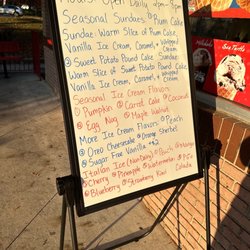 Hours Open Daily 2pm - 8pm
Seasonal Sundaes • Plum Cake
Sundae: Warm Slice of Plum Cake,
Vanilla Ice Cream, Caramel, Whipped Cream
② Sweet Potato Pound Cake Sundae
Warm Slice of Sweet Potato Pound Cake
Vanilla Ice Cream, Caramel, Whipped Cream
Seasonal Ice Cream Flavors:
① Pumpkin ② Carrot Cake ③ Coconut
④ Egg Nog ⑤ Maple Walnut
More Ice Cream Flavors ① Peach
② Oreo Cheesecake ③ Orange Sherbet
④ Sugar Free Vanilla
Italian Ice (Non Dairy) ① Peach ② Mango
③ Cherry ④ Pineapple ⑤ Watermelon ⑥ Piña
⑦ Blueberry ⑧ Strawberry Kiwi Colada